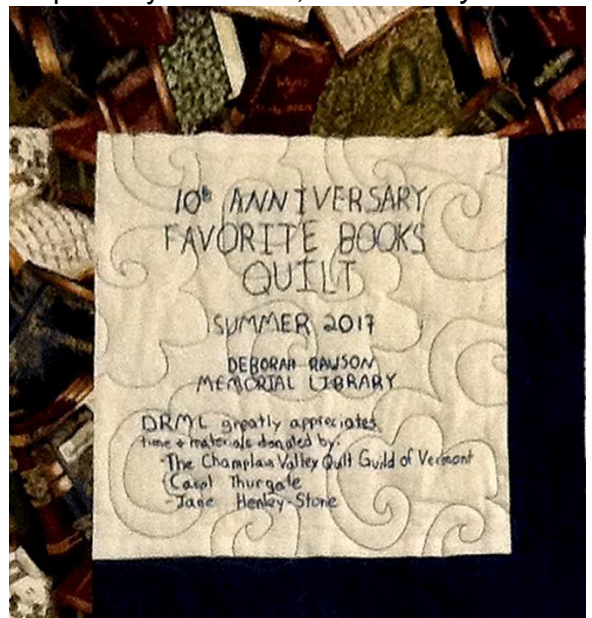 10th ANNIVERSARY
FAVORITE BOOKS
QUILT
SUMMER 2017
DEBORAH RAWSON
MEMORIAL LIBRARY
DRML greatly appreciates
time + materials donated by:
-The Champlain Valley Quilt Guild of Vermont
-Carol Thurgate
-Jane Henley-Stone